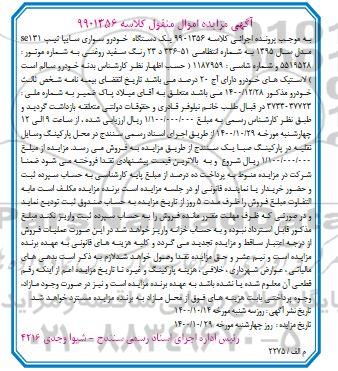 آگهی مزایده اموال منقول کلاسه ۹۹۰۱۳۵۶
به موجب پرونده اجرائی کلاسه ۹۹۰۱۳۵۶ یک دستگاه خودرو سواری سایپا تیپ se۱۳۱
مدل سال ۱۳۹۵ به شماره انتظامی ۵۱-۳۳۶ د ۲۳ رنگ سفید روغنی به شماره موتور :
۵۵۱۹۵۲۸ و شماره شاسی : ۱۱۸۷۹۵۹ ( حسب اظهار نظر کارشناس بدنه خودرو سالم است
) لاستیک های خودرو دارای آج ۲۰ درصد می باشد تاریخ انقضای بیمه نامه شخص ثالث
خودرو مذکور ۱۴۰۰/۱۲/۲۸ می باشد متعلق به آقای میلاد پاک ضمیر به شماره ملی :
۳۷۳۳-۳۷۷۲۳ در قبال طلب خانم نیلوفر قادری و حقوقات دولتی متعلقه بازداشت گردید و
طبق نظر کارشناس رسمی به مبلغ ۱/۱۰۰/۰۰۰/۰۰۰ ریال ارزیابی شده ، از ساعت ۹ الی ۱۲
چهارشنبه مورخه ۱۴۰۰/۱۰/۲۹ از طریق اجرای اسناد رسمی سنندج در محل پارکینگ وسایل
نقلیه در پارکینگ صبا یک سنندج از طریق مزایده به فروش می رسد. مزایده از مبلغ
۱/۱۰۰/۰۰۰/۰۰۰ ریال شروع و به بالاترین قیمت پیشنهادی نقدا فروخته می شود ضمنا
شرکت در مزایده منوط به پرداخت ده درصد از مبلغ پایه کارشناسی به حساب سپرده ثبت
و حضور خریدار یا نماینده قانونی او در جلسه مزایده است برنده مزایده مکلف است مابه
التفاوت مبلغ فروش را ظرف مدت ۵ روز از تاریخ مزایده به حساب صندوق ثبت تودیع نماید
و در صورتی که ظرف مهلت مقرر مانده فروش را به حساب سپرده ثبت واریز نکند مبلغ
مذکور قابل استرداد نبوده و به حساب خزانه واریز خواهد شد در این صورت عملیات فروش
از درجه اعتبار ساقط و مزایده تجدید می گردد و کلیه هزینه های قانونی به عهده برنده
مزایده است و نیم عشر و حق مزایده نقدا وصول خواهد شد لازم به ذکر است بدهی های
مالیاتی ، عوارض شهرداری ، خلافی ، هزینه پارکینگ و غیره تا تاریخ مزایده اعم از اینکه رقم
قطعی آن معلوم شده یا نشده باشد به عهده برنده مزایده است و نیز در صورت وجود مازاد،
وجوه پرداختی بابت هزینه های فوق از محل مازاد به برنده مزایده مسترد خواهد شد
تاریخ نشر آگهی : روز سه شنبه مورخه ۱۴۰۰/۱۰/۱۴
تاریخ مزایده : روز چهارشنبه مورخه ۱۴۰۰/۱۰/۲۹
رئیس اداره اجرای اسناد رسمی سنندج – شیوا وحدی ۴۲۱۶
م الف / ۲۲۷۵
۰۲۱-۸۸۳۴۹۶۷۰-۵